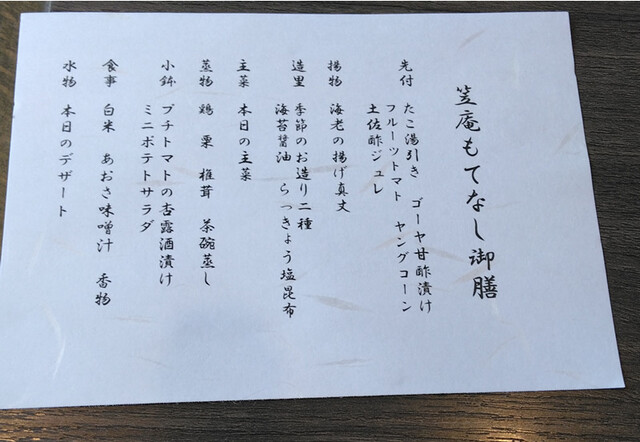 笠庵もてなし御膳
先付 たこ湯引き ゴーヤ甘酢漬け
フルーツトマト ヤングコーン
土佐酢ジュレ
揚物 海老の揚げ真丈
造里 季節のお造り二種
海苔醤油 らっきょう塩昆布
主菜 本日の主菜
蒸物 鶏 栗 椎茸 茶碗蒸し
小鉢 プチトマトの杏露酒漬け
ミニポテトサラダ
食事 白米 あおさ味噌汁 香物
水物 本日のデザート